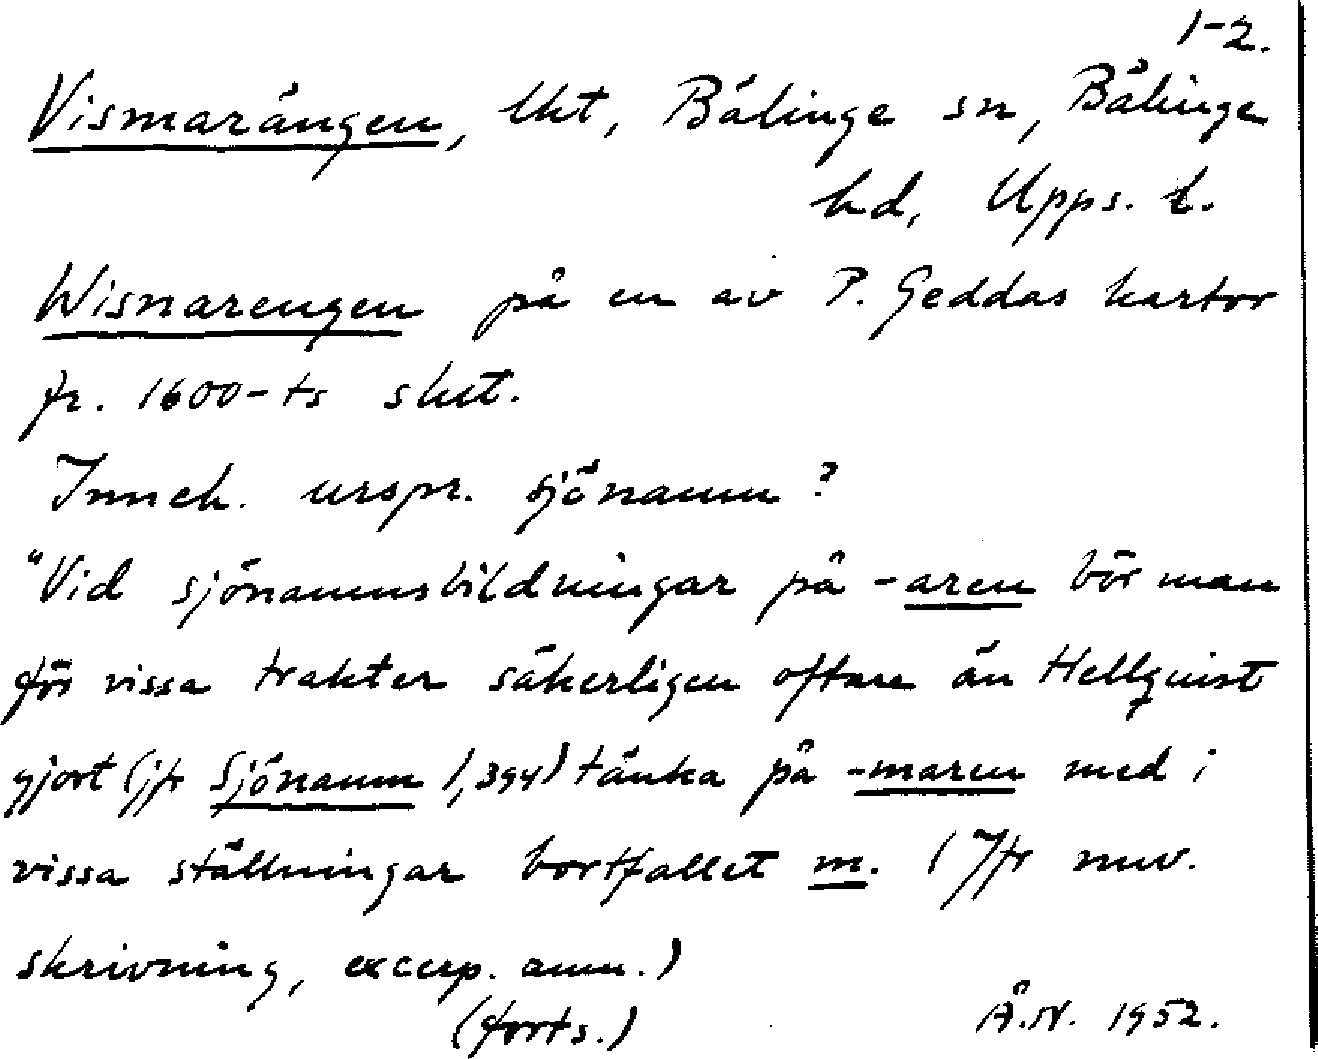 1-2.
Vismarängen, lht, Bälinge sn, Bälinge
hd, Upps. l.
Wisnarengen på en av P. Geddas kartor
fr. 1600-ts slut.
Inneh. urspr. sjönamn?
"Vid sjönamnsbildningar på -aren bör man
för vissa trakter säkerligen oftare än Hellquist
gjort (jfr Sjönamn 1,394) tänka på -maren med i
vissa ställningar bortfallet m. (Jfr nuv.
skrivning, excerp. anm.)
(forts.)
Å.N. 1952.